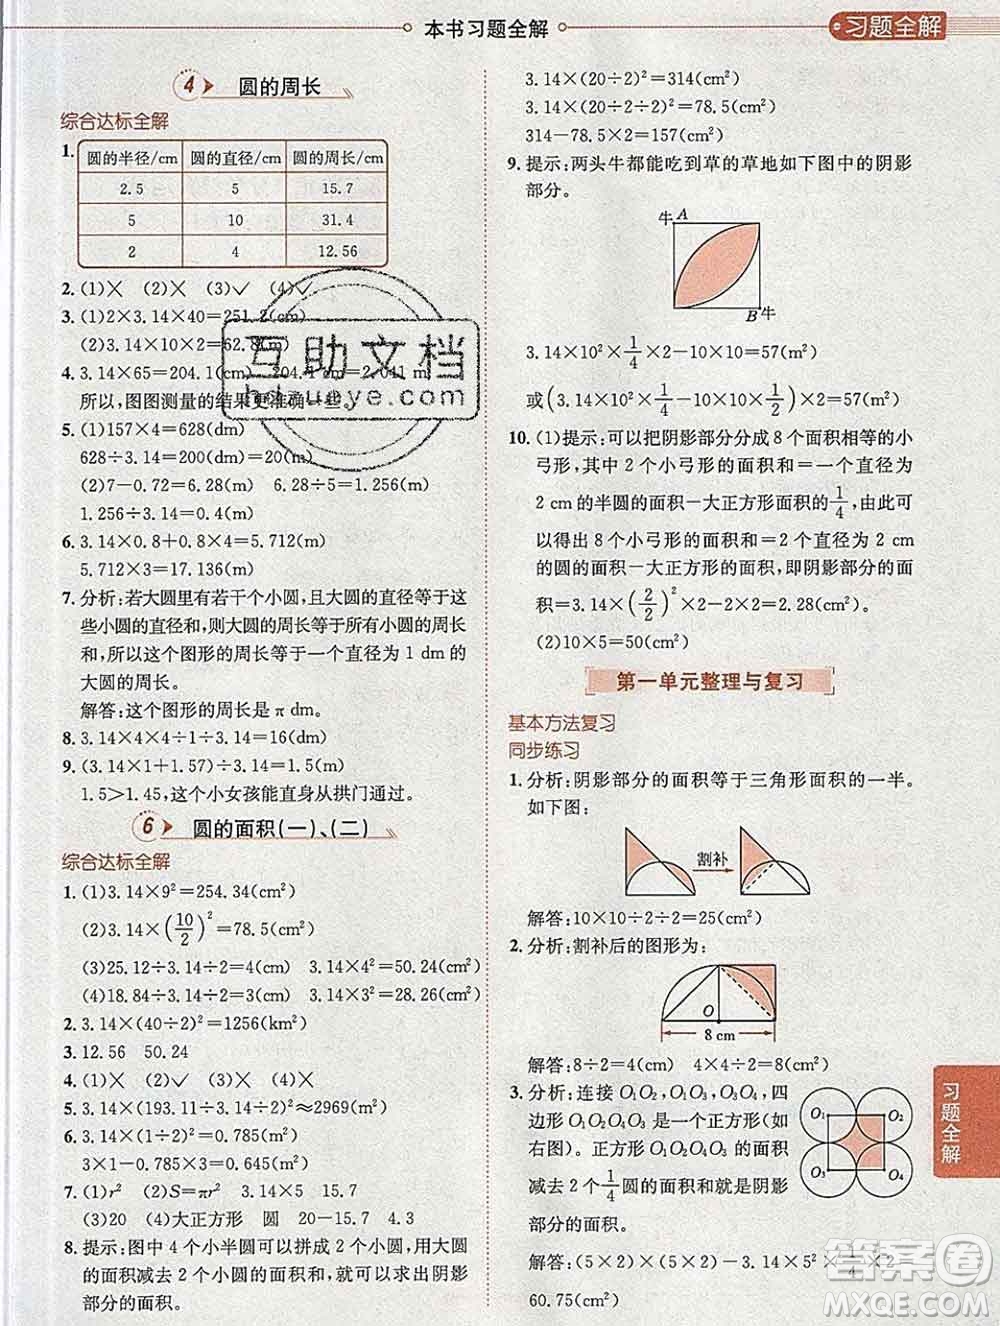 本书习题全解
习题全解
4 圆的周长
综合达标全解
1. 圆的半径/cm 圆的直径/cm 圆的周长/cm
2.5 5 15.7
5 10 31.4
2 4 12.56
2. (1)× (2)× (3)✓ (4)✓
3. (1)2×3.14×40=251.2(cm)
(2)3.14×10×2=62.8(m)
4. 3.14×65=204.1(cm) 204.1 cm=2.041 m
所以,图图测量的结果更准确一些。
5. (1)157×4=628(dm)
628÷3.14÷4=50(dm)
(2)7-0.72=6.28(m) 6.28÷5=
1.256(m)
1.256÷3.14=0.4(m)
6. 3.14×0.8+0.8×4=5.712(m)
5.712×3=17.136(m)
7. 分析:若大圆里有若干个小圆,且大圆的直径等于这
些小圆的直径和,则大圆的周长等于所有小圆的周长
和,所以这个图形的周长等于直径为 1 dm的
大圆的周长。
解答:这个图形的周长是 π dm。
8. 3.14×4×4÷1÷3.14=16(cm)
9. (3.14×1+1.57)÷3.14=1.5(m)
1.5>1.45,这个小女孩能直身从拱门通过。
6 圆的面积(一)、(二)
综合达标全解
1. (1)3.14×9²=254.34(cm²)
(2)3.14×(10/2)²=78.5(cm²)
(3)25.12÷3.14÷2=4(cm) 3.14×4²=50.24(cm²)
(4)18.84÷3.14÷2=3(cm) 3.14×3²=28.26(cm²)
2. 3.14×(40÷2)²=1256(km²)
3. 12.56 50.24
4. (1)× (2)✓ (3)✓ (4)×
5. 3.14×(193.11÷3.14÷2)²≈2969(m²)
6. 3.14×(1÷2)²=0.785(m²)
3×1-0.785×3=0.645(m²)
7. (1)r² (2)S=πr² 3.14×5 15.7
(3)20 (4)大正方形 圆 20-15.7 4.3
8. 提示:图中 4 个小半圆可以拼成 2 个小圆,用大圆
的面积减去 2 个小圆的面积和,就可以求出阴影
部分的面积。
3.14×(20÷2)²=314(cm²)
3.14×(10÷2)²=78.5(cm²)
314-78.5×2=157(cm²)
9. 提示:两头牛都能吃到草的草地如下图中的阴影
部分。
牛 A
B 牛
3.14×10²×1/4×2-10×10=57(m²)
或(3.14×10²×1/4-10×10×1/2)×2=57(m²)
10. (1)提示:可以把阴影部分分成 8 个面积相等的小
弓形,其中 2 个小弓形的面积和=1个直径为
2 cm的半圆的面积-大正方形面积的1/4,由此可
以得出 8 个小弓形的面积和=2 个直径为 2 cm
的圆的面积-大正方形的面积,即阴影部分的面
积=3.14×(2/2)²×2-2×2=2.28(cm²)
(2)10×5=50(cm²)
第一单元整理与复习
基本方法复习
同步练习
1. 分析:阴影部分的面积等于三角形面积的一半。
如下图:
割补
解答:10×10÷2÷2=25(cm²)
2. 分析:割补后的图形为:
O
8 cm
解答:8÷2=4(cm) 4×4÷2=8(cm²)
3. 分析:连接 O₁O₂,O₁O₃,O₃O₄,O₂O₄,四
边形 O₁O₂O₄O₃ 是一个正方形(如
右图)。正方形 O₁O₂O₄O₃ 的面积
减去 2 个1/4圆的面积和就是阴影
部分的面积。
O₁ O₂
O₃ O₄
解答:(5×2)×(5×2)-3.14×5²×1/4×2=
60.75(cm²)
习题全解
互助文档
答案圈
MXQE.COM